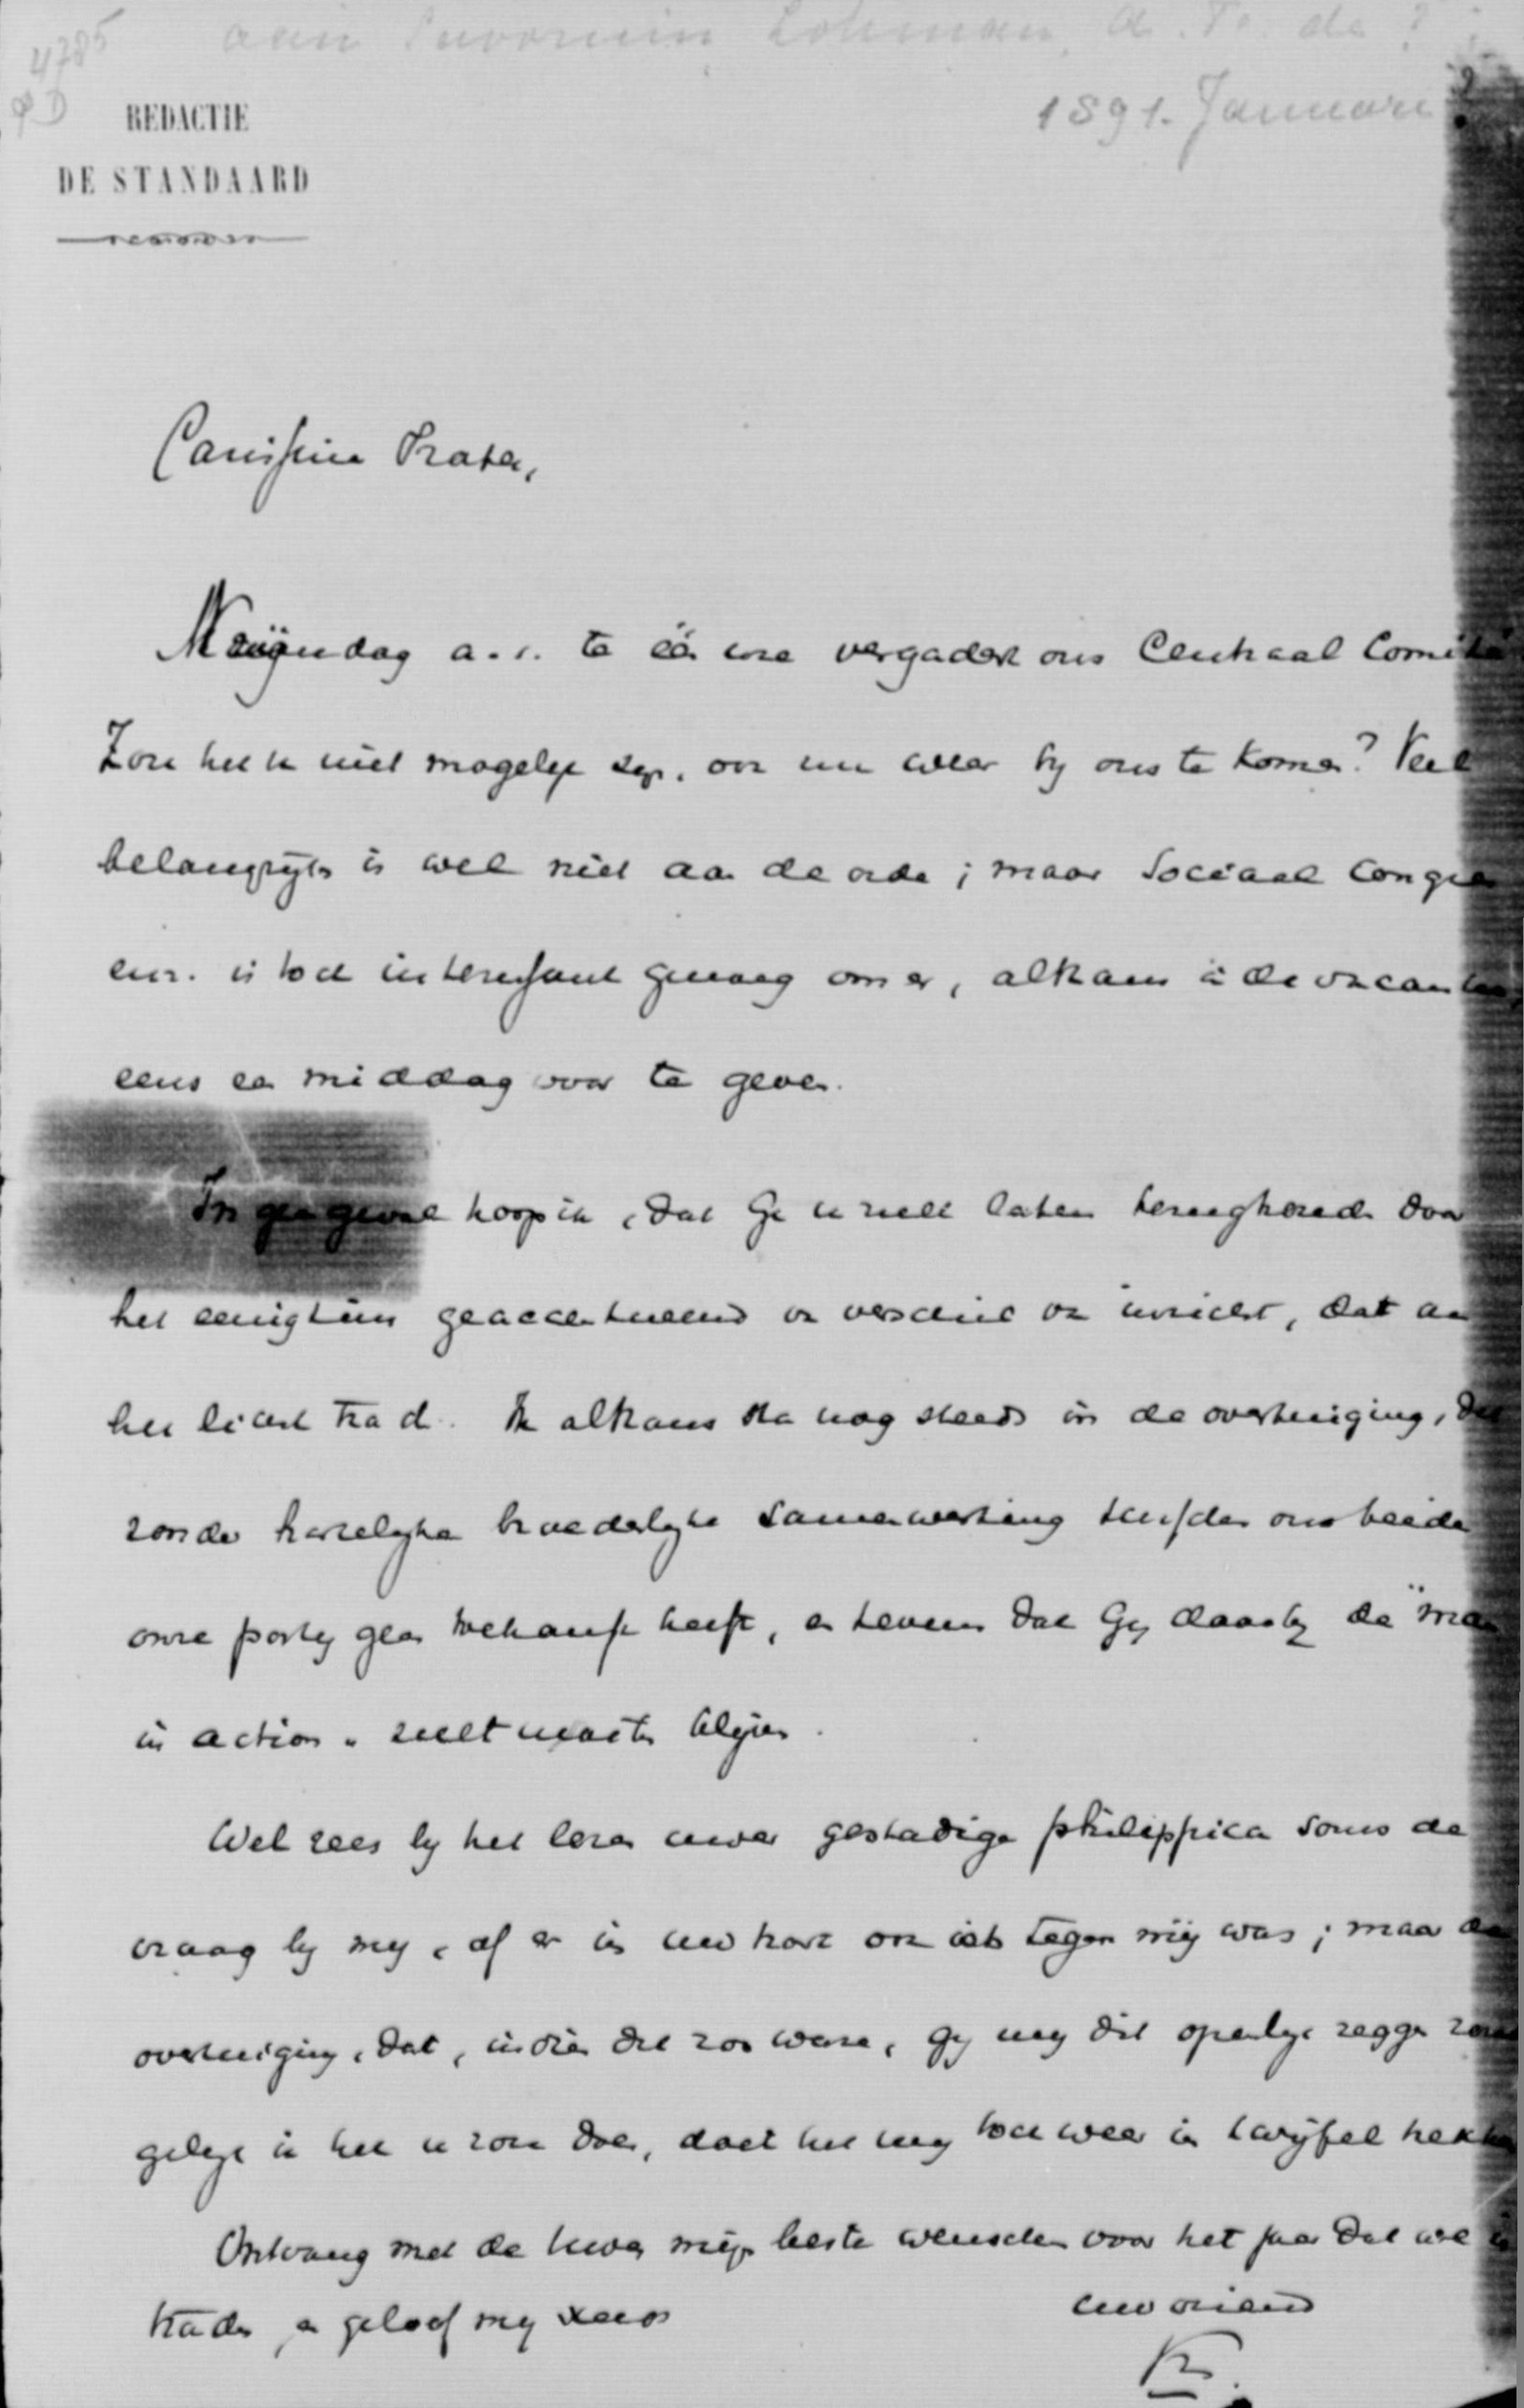 4785
aan Savornin Lohman, A. F. de ?
1891. Januari ?
REDACTIE
DE STANDAARD
Carissime Frater,
Maandag a.s. te één ure vergadert ons Centraal Comité
Zou het U niet mogelijk zijn, om nu weer bij ons te komen? Veel
belangrijks is wel niet aan de orde; maar Sociaal Congres
enz. is toch interessant genoeg om er, althans in de vacantie,
eens een middag voor te geven.
In geen geval hoop ik, dat Ge U zult laten terughouden door
het eenigszins geaccentueerd verschil van inzicht, dat aan
het licht trad. Ik althans sta nog steeds in de overtuiging, dat
zonder hartelijke broederlijke samenwerking tusschen ons beiden
onze partij geen toekomst heeft, en tevens dat Gij daarbij de "man
in action" zult moeten blijven.
Wel rees bij het lezen uwer gestadige philippica soms de
vraag bij mij, of er in uw hart ook iets tegen mij was; maar de
overtuiging, dat, indien dit zoo ware, gij mij dit openlijk zeggen zoudt
gelijk ik het U zou doen, doet het mij toch weer in twijfel trekken
Ontvang met de Uwen mijn beste wenschen voor het jaar dat we in
traden, en geloof mij steeds
uw vriend
K.